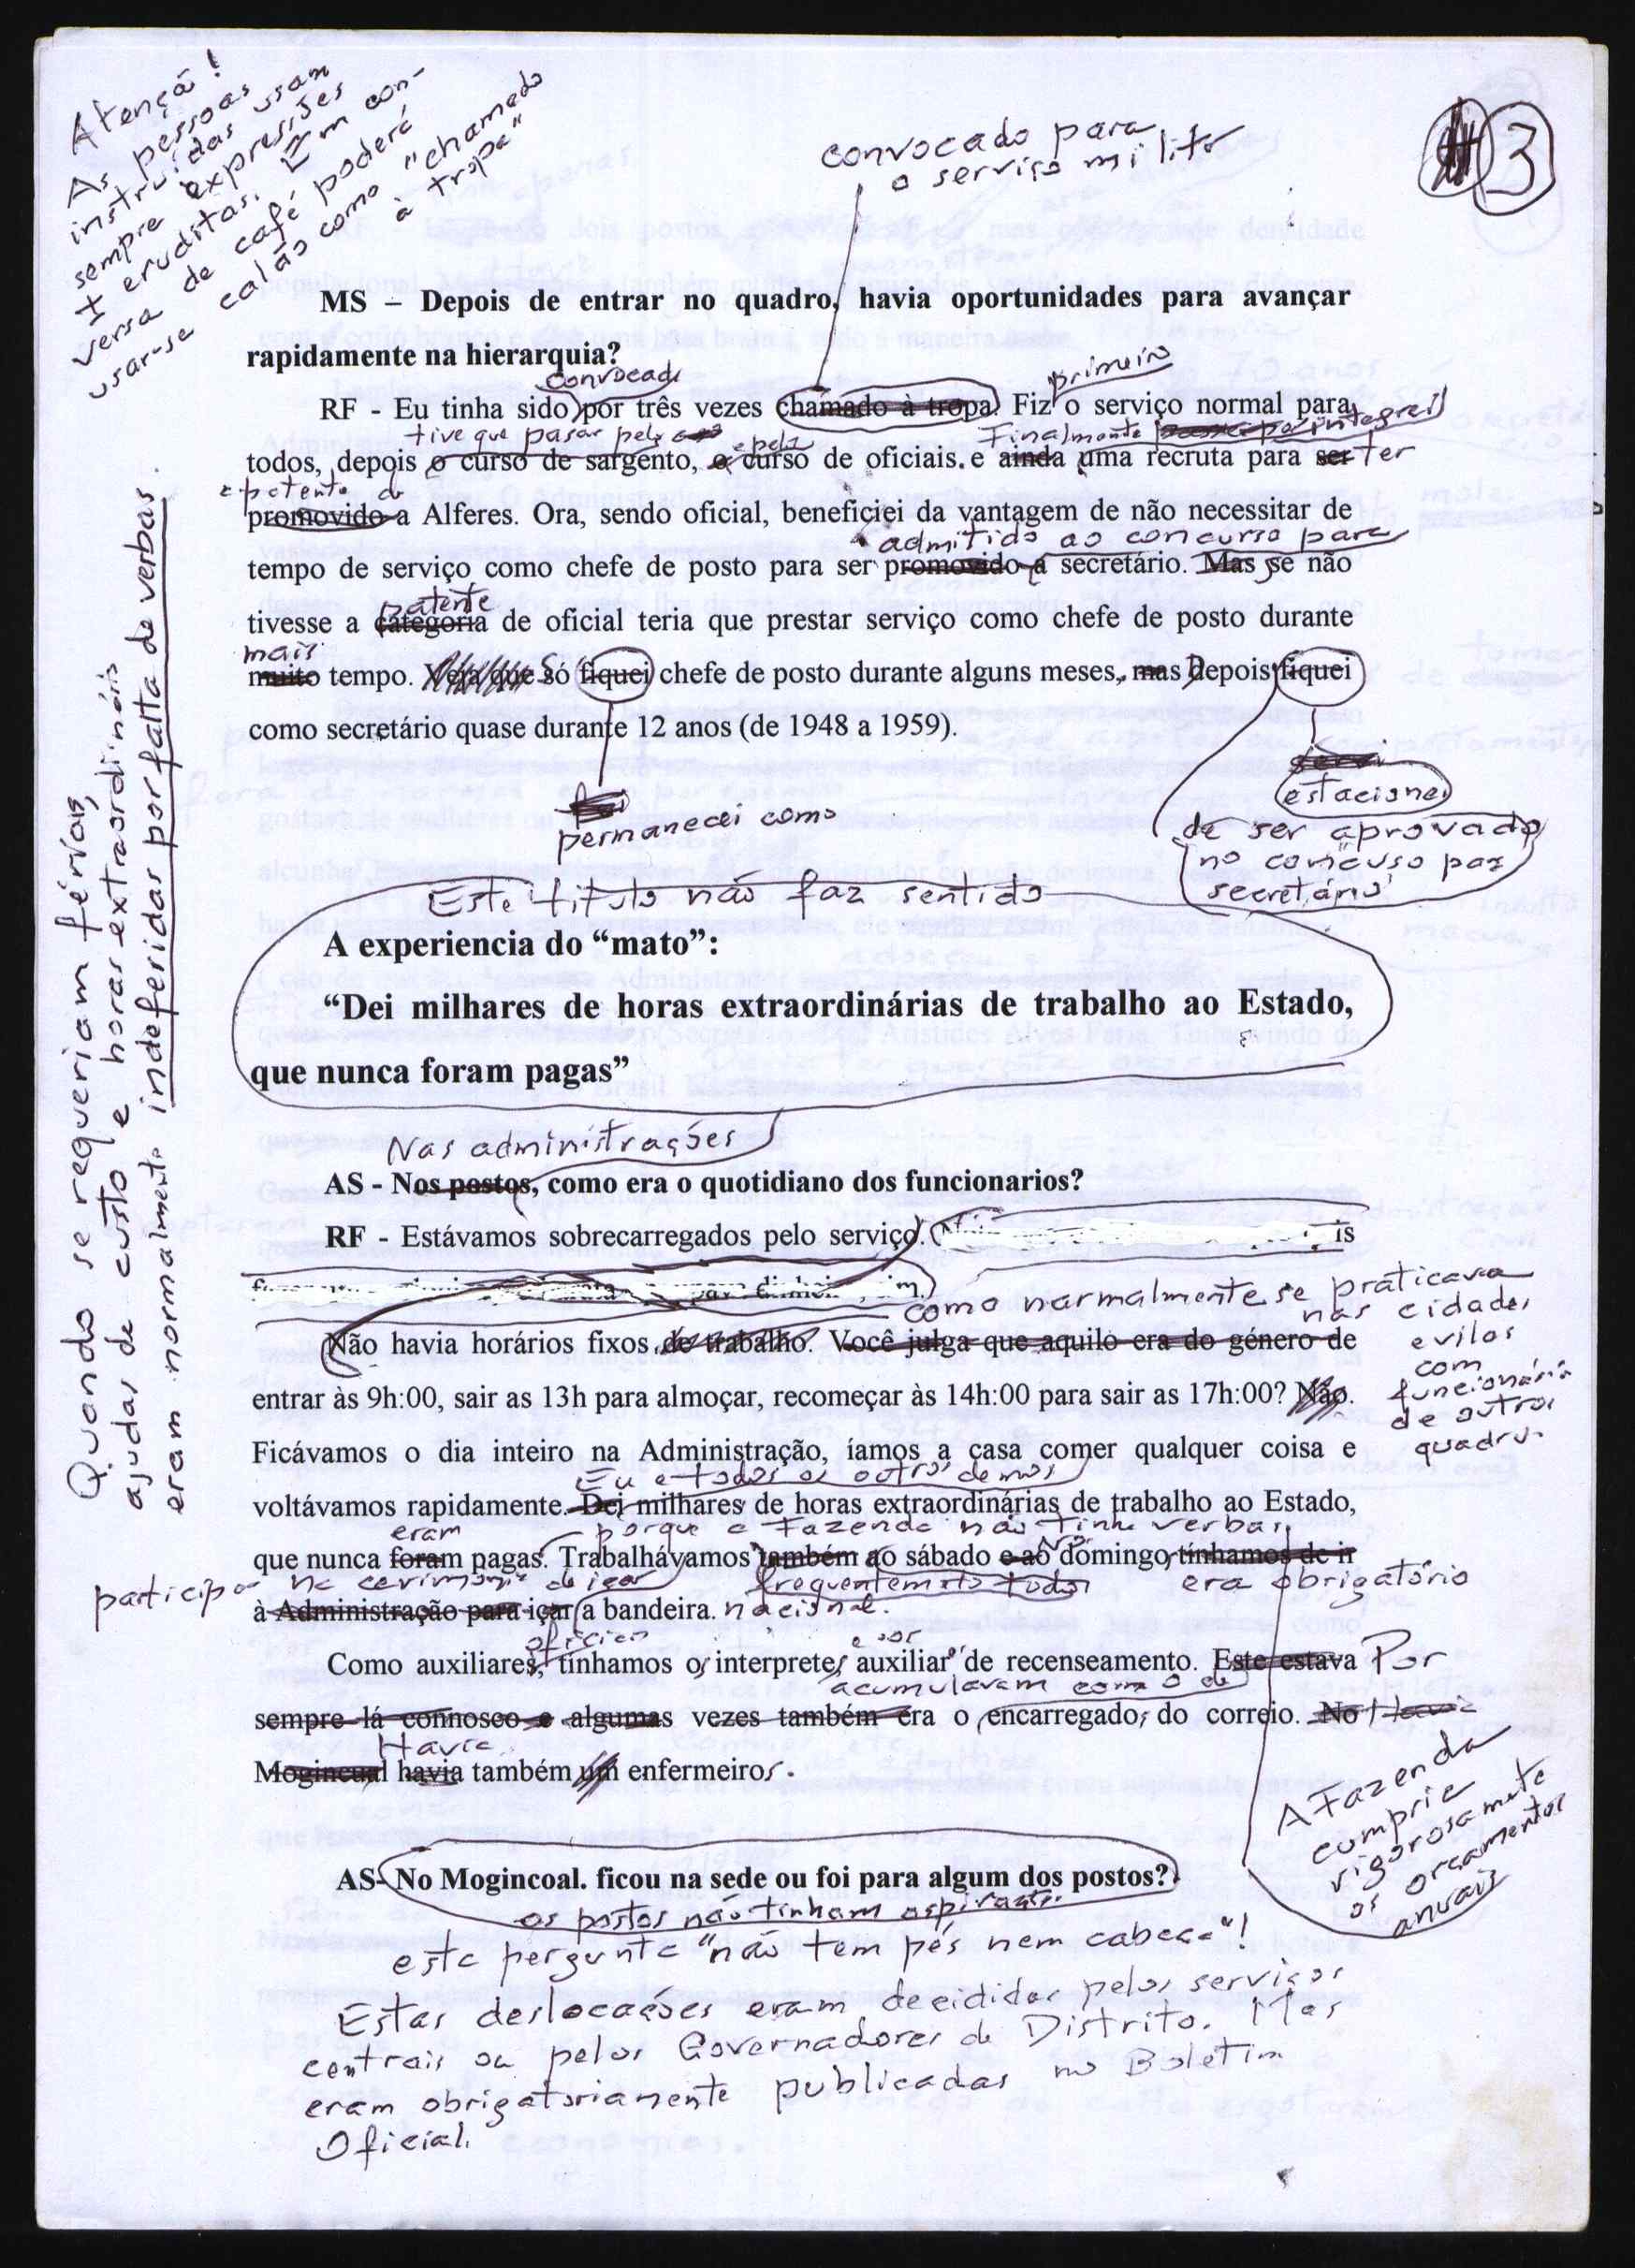 Atenção!
As pessoas
instruídas usam
sempre expressões
+ eruditas. Em con-
versa de café poderá
usar-se calão como "chamado
à tropa"
convocado para
o serviço militar
3
MS – Depois de entrar no quadro, havia oportunidades para avançar
rapidamente na hierarquia?
convocado
primeiro
RF - Eu tinha sido por três vezes chamado à tropa. Fiz o serviço normal para
tive que passar pelo e pelo Finalmente integrei
todos, depois o curso de sargento, o curso de oficiais. e ainda uma recruta para ser ter
a patente de
promovido a Alferes. Ora, sendo oficial, beneficiei da vantagem de não necessitar de
admitido ao concurso para
tempo de serviço como chefe de posto para ser promovido a secretário. Mas se não
patente
tivesse a categoria de oficial teria que prestar serviço como chefe de posto durante
mais
muito tempo. Veja que Só fiquei chefe de posto durante alguns meses, mas Depois fiquei
como secretário quase durante 12 anos (de 1948 a 1959).
permaneci como
estacionei
de ser aprovado
no concurso para
secretário
Este título não faz sentido
A experiencia do “mato”:
“Dei milhares de horas extraordinárias de trabalho ao Estado,
que nunca foram pagas”
Nas administrações
AS - Nos postos, como era o quotidiano dos funcionarios?
RF - Estávamos sobrecarregados pelo serviço. is
como normalmente se praticava
nas cidades
e vilas
com
funcionários
de outros
quadros
Não havia horários fixos de trabalho. Você julga que aquilo era do género de
entrar às 9h:00, sair as 13h para almoçar, recomeçar às 14h:00 para sair as 17h:00? Não.
Ficávamos o dia inteiro na Administração, íamos a casa comer qualquer coisa e
Eu e todos os outros demos
voltávamos rapidamente. Dei milhares de horas extraordinárias de trabalho ao Estado,
eram porque a Fazenda não tinha verbas
que nunca foram pagas. Trabalhávamos também ao sábado e ao domingo, tínhamos de ir
participar na cerimónia de içar frequentemente todos era obrigatório
à Administração para içar a bandeira. nacional.
oficiais
Como auxiliares, tínhamos os interpretes auxiliar de recenseamento. Este estava Por
acumulavam com o de
sempre lá connosco e algumas vezes também era o encarregado, do correio. No Havia
Havia
Mogincual havia também um enfermeiros.
A Fazenda
cumpria
rigorosamente
os orçamentos
anuais
AS- No Mogincoal. ficou na sede ou foi para algum dos postos?
os postos não tinham aspirantes
esta pergunta "não tem pés nem cabeça"!
Estas deslocações eram decididas pelos serviços
centrais ou pelos Governadores de Distrito. Mas
eram obrigatoriamente publicadas no Boletim
Oficial.
Quando se requeriam férias,
ajudas de custo e horas extraordinárias
eram normalmente indeferidas por falta de verbas.